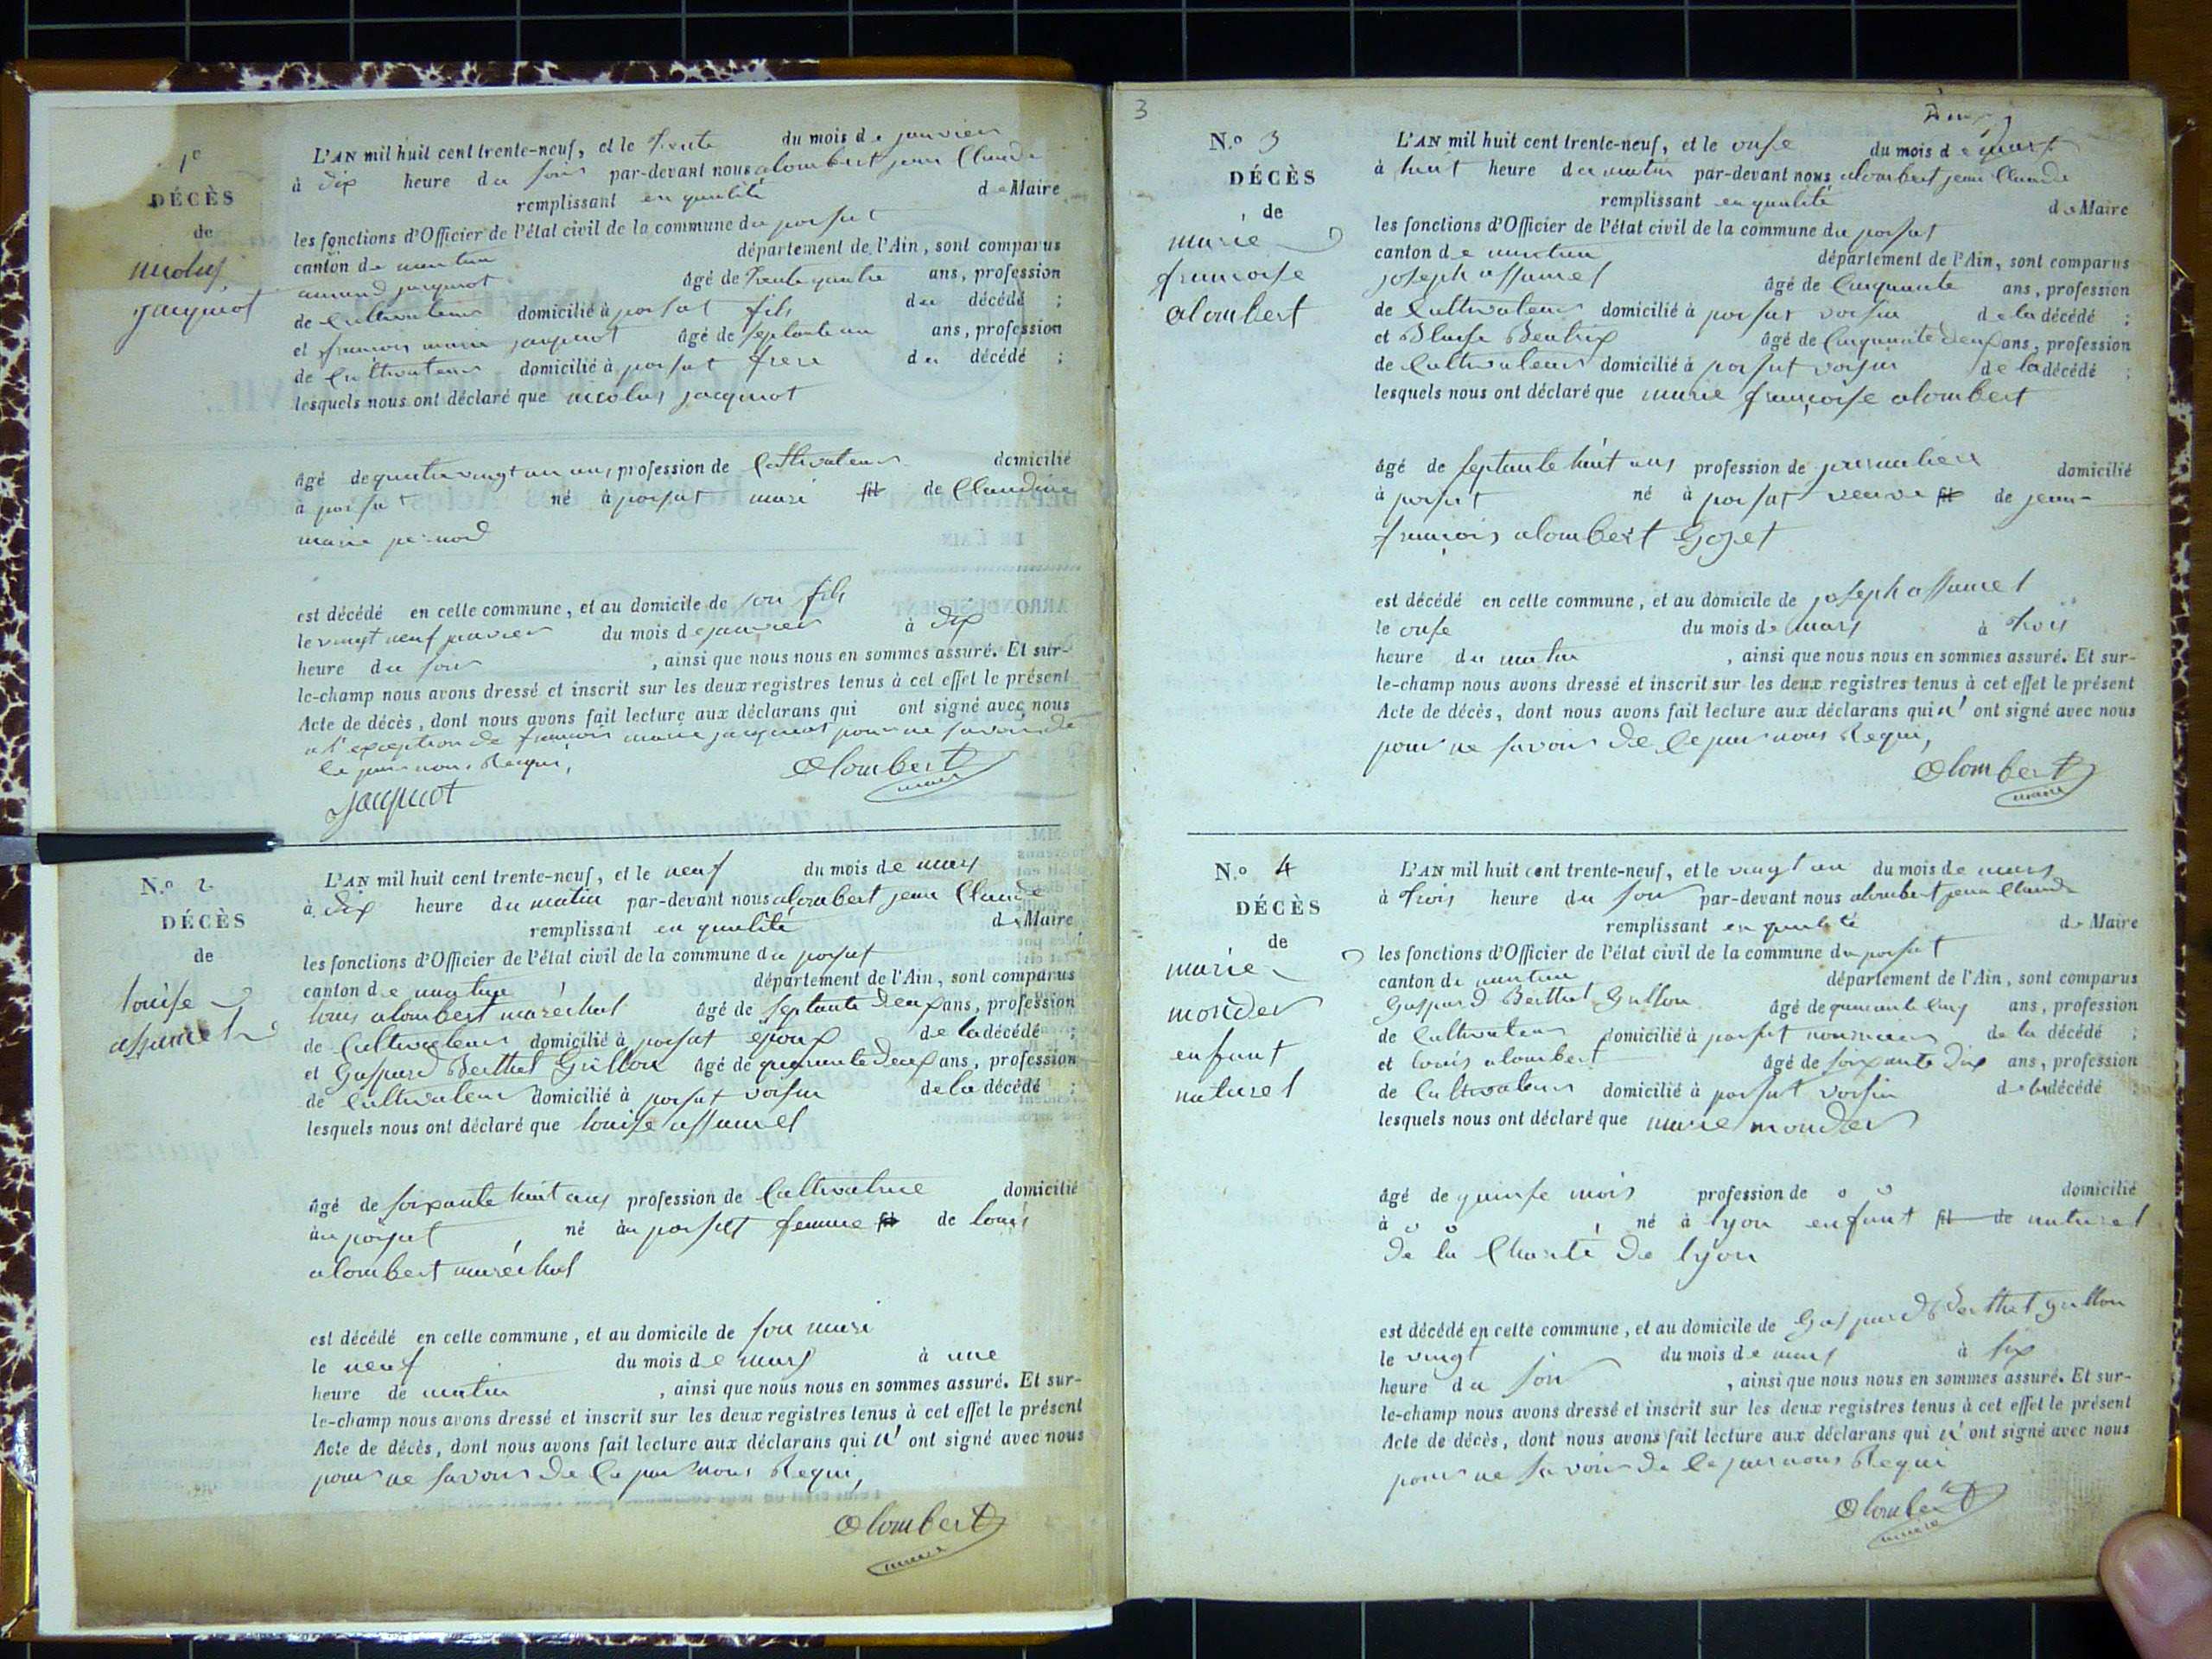 1e
DÉCÈS
de
nicolas
jacquiot
L'AN mil huit cent trente-neuf, et le trente du mois de janvier
à dix heure du soir par-devant nous alombert jean Claude
remplissant en qualité de Maire
les fonctions d'Officier de l'état civil de la commune du poisat
canton de nantua département de l'Ain, sont comparus
armand jacquiot âgé de trente quatre ans, profession
de Cultivateur domicilié à poisat fils du décédé ;
et françois marie jacquiot âgé de septante un ans, profession
de Cultivateur domicilié à poisat frere du décédé ;
lesquels nous ont déclaré que nicolas jacquiot
âgé de quatre vingt un ans, profession de Cultivateur domicilié
à poisat né à poisat mari fil de Claudine
marie
est décédé en cette commune, et au domicile de son fils
le vingt neuf janvier du mois de janvier à dix
heure du soir , ainsi que nous nous en sommes assuré. Et sur-
le-champ nous avons dressé et inscrit sur les deux registres tenus à cet effet le présent
Acte de décès, dont nous avons fait lecture aux déclarans qui ont signé avec nous
a l'exception de françois marie jacquiot pour ne savoir de
ce par nous Requi,
alombert
maire
jacquiot
N.o 2
DÉCÈS
de
louise
assumel
L'AN mil huit cent trente-neuf, et le neuf du mois de mars
à dix heure du matin par-devant nous alombert jean Claude
remplissant en qualité de Maire
les fonctions d'Officier de l'état civil de la commune du poisat
canton de nantua département de l'Ain, sont comparus
louis alombert maréchal âgé de septante deux ans, profession
de Cultivateur domicilié à poisat époux de la décédé ;
et Gaspard Berthet Grillon âgé de quarante deux ans, profession
de Cultivateur domicilié à poisat voisin de la décédé ;
lesquels nous ont déclaré que louise assumel
âgé de soixante huit ans profession de Cultivatrice domicilié
au poisat né au poisat femme fil de louis
alombert maréchal
est décédé en cette commune, et au domicile de son mari
le neuf du mois de mars à une
heure de matin , ainsi que nous nous en sommes assuré. Et sur-
le-champ nous avons dressé et inscrit sur les deux registres tenus à cet effet le présent
Acte de décès, dont nous avons fait lecture aux déclarans qui n' ont signé avec nous
pour ne savoir de ce par nous Requi,
alombert
maire
3
N.o 3
DÉCÈS
de
marie
françoise
alombert
L'AN mil huit cent trente-neuf, et le onse du mois de mars
à huit heure du matin par-devant nous alombert jean Claude
remplissant en qualité de Maire
les fonctions d'Officier de l'état civil de la commune du poisat
canton de nantua département de l'Ain, sont comparus
joseph assumel âgé de Cinquante ans, profession
de Cultivateur domicilié à poisat voisin de la décédé ;
et Blaise Beatrix âgé de Cinquante deux ans, profession
de Cultivateur domicilié à poisat voisin de la décédé ;
lesquels nous ont déclaré que marie françoise alombert
âgé de septante huit ans profession de journaliere domicilié
à poisat né à poisat veuve fil de jean-
françois alombert Gozet
est décédé en cette commune, et au domicile de joseph assumel
le onse du mois de mars à trois
heure du matin , ainsi que nous nous en sommes assuré. Et sur-
le-champ nous avons dressé et inscrit sur les deux registres tenus à cet effet le présent
Acte de décès, dont nous avons fait lecture aux déclarans qui n' ont signé avec nous
pour ne savoir de ce par nous Requi,
alombert
maire
N.o 4
DÉCÈS
de
marie
monder
enfant
naturel
L'AN mil huit cent trente-neuf, et le vingt un du mois de mars
à trois heure du soir par-devant nous alombert jean Claude
remplissant en qualité de Maire
les fonctions d'Officier de l'état civil de la commune du poisat
canton de nantua département de l'Ain, sont comparus
Gaspard Berthet Grillon âgé de quarante cinq ans, profession
de Cultivateur domicilié à poisat de la décédé ;
et louis alombert âgé de soixante dix ans, profession
de Cultivateur domicilié à poisat voisin de la décédé ;
lesquels nous ont déclaré que marie monder
âgé de quinse mois profession de domicilié
à né à lyon enfant fil de naturel
de la Charité de lyon
est décédé en cette commune, et au domicile de Gaspard Berthet grillon
le vingt du mois de mars à six
heure du soir , ainsi que nous nous en sommes assuré. Et sur-
le-champ nous avons dressé et inscrit sur les deux registres tenus à cet effet le présent
Acte de décès, dont nous avons fait lecture aux déclarans qui n' ont signé avec nous
pour ne savoir de ce par nous Requi
alombert
maire